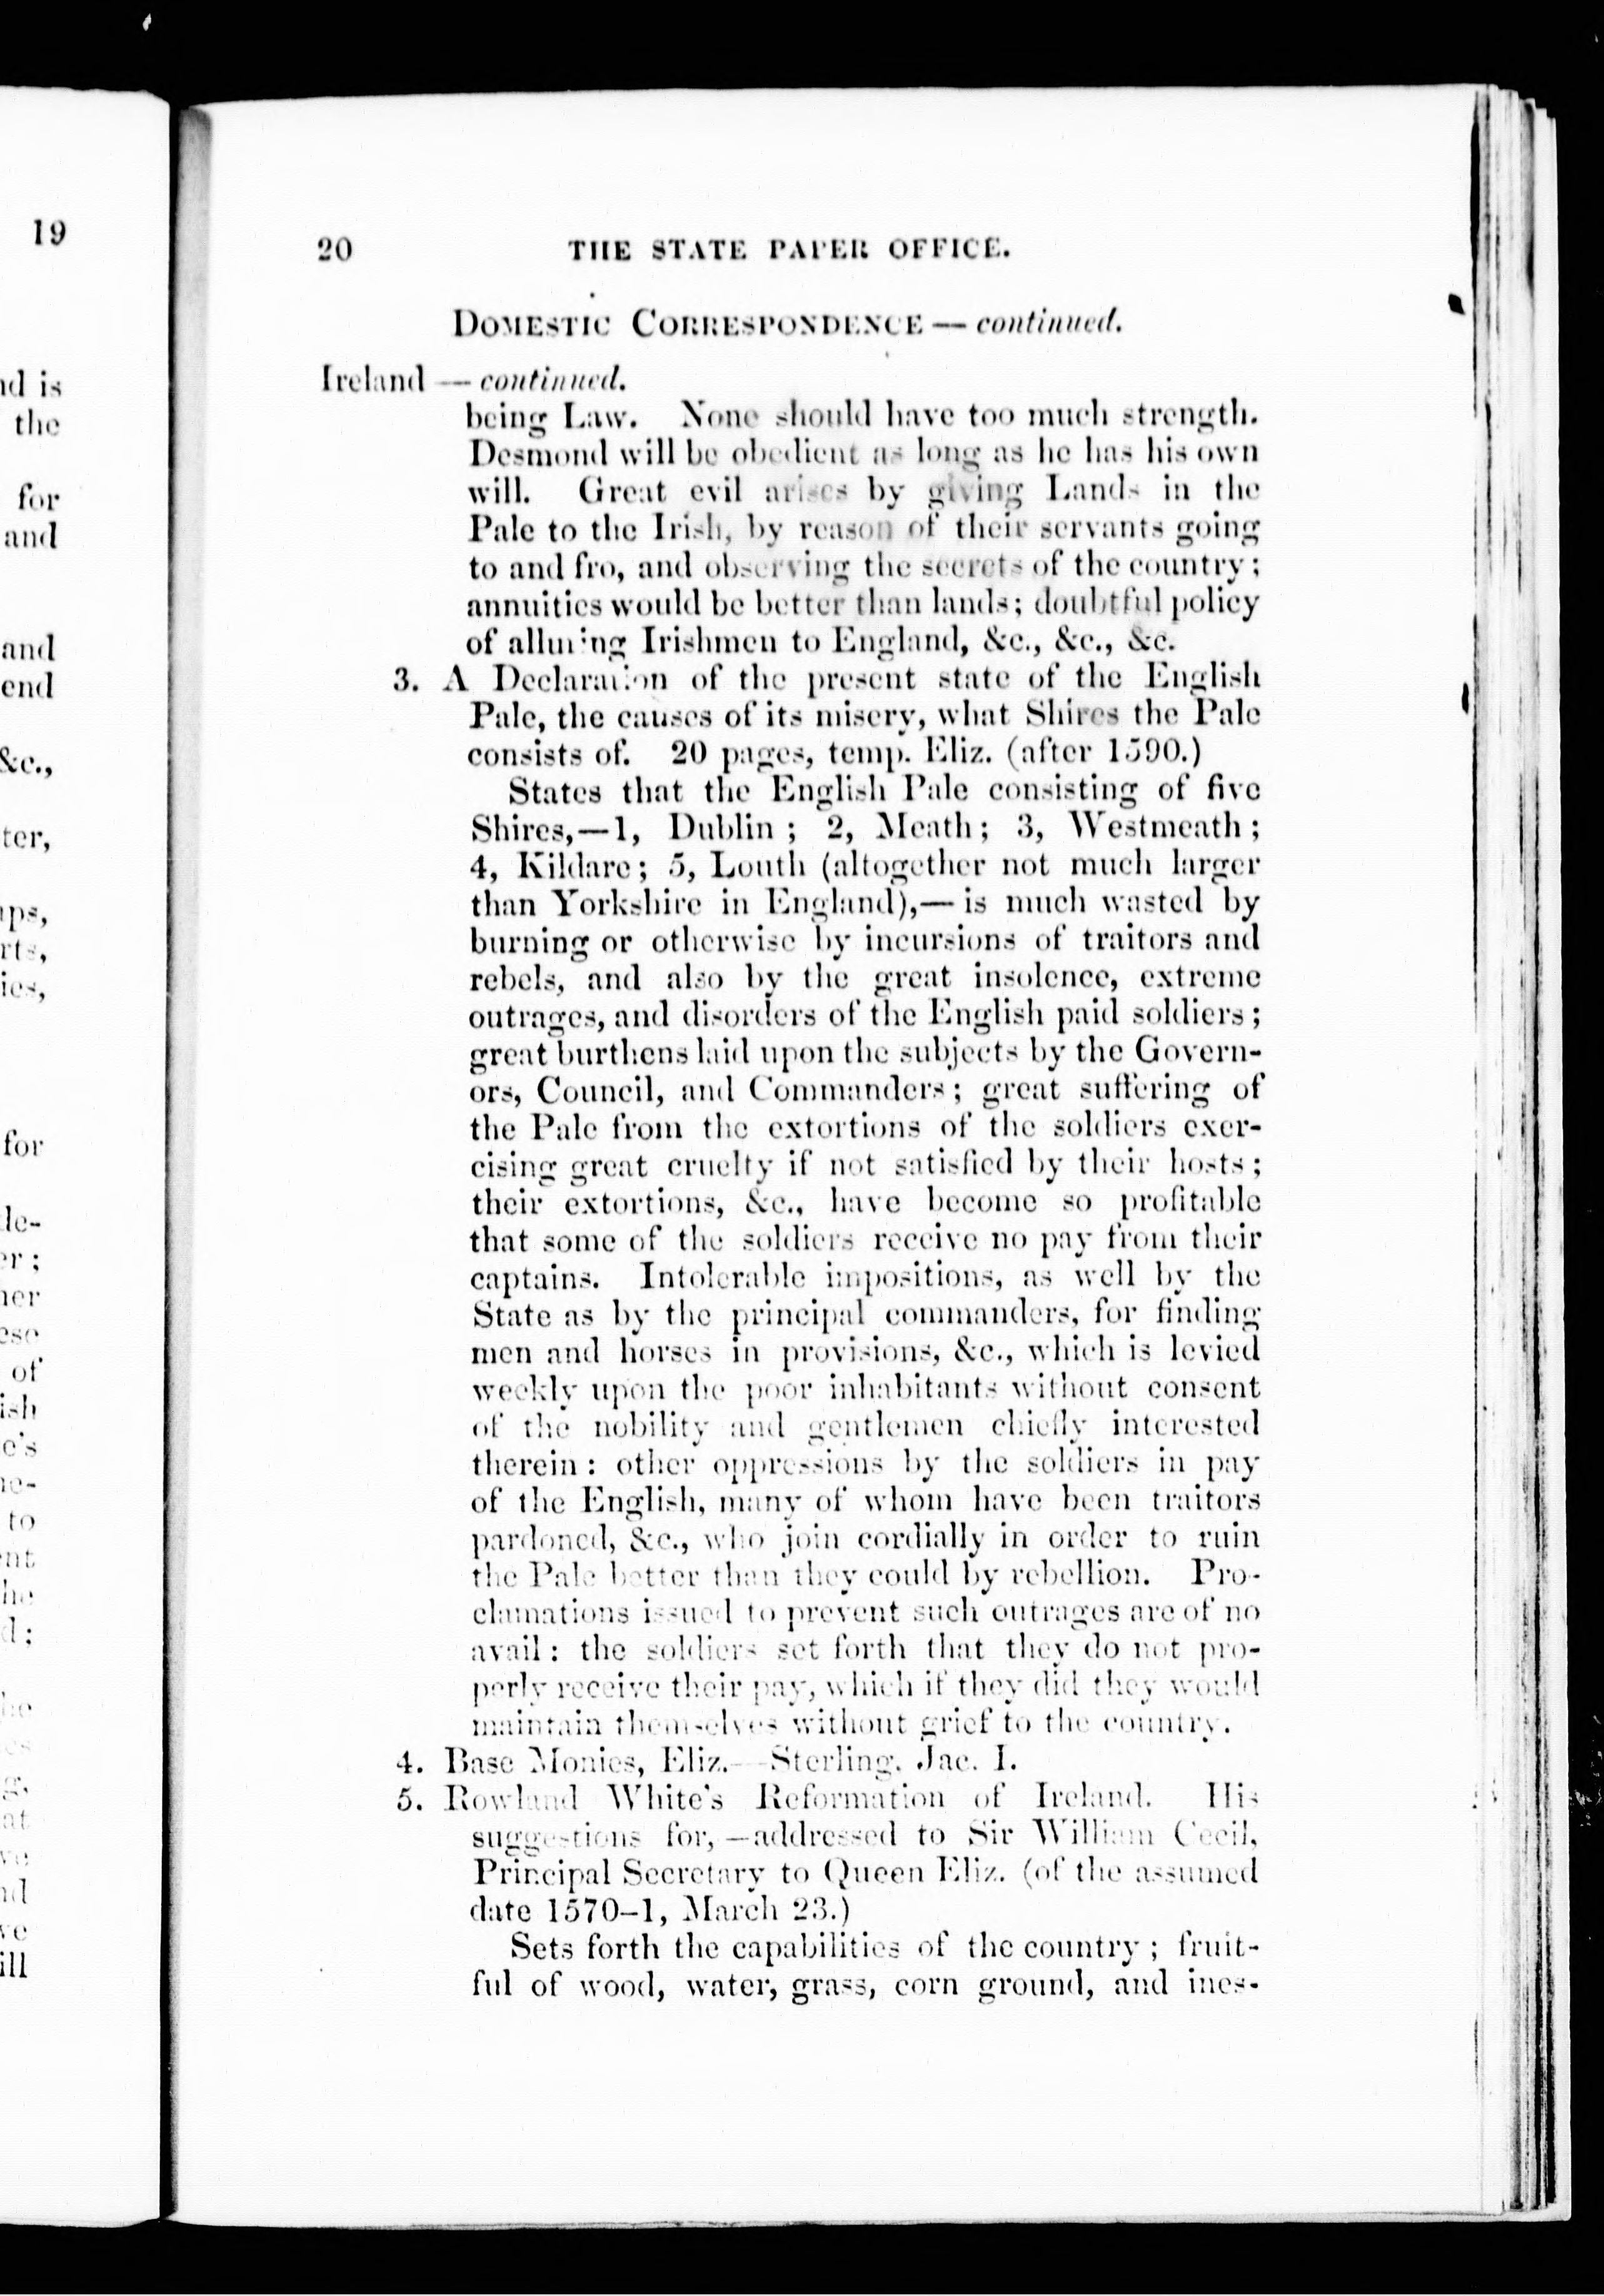 19
nd is
the
for
and
and
end
&c.,
ter,
rts,
for
de-
er;
her
ese
of
ish
e's
to
ent
he
d:
at
ve
nd
ve
ill
20 THE STATE PAPER OFFICE.
DOMESTIC CORRESPONDENCE — continued.
Ireland — continued.
being Law. None should have too much strength.
Desmond will be obedient as long as he has his own
will. Great evil arises by giving Lands in the
Pale to the Irish, by reason of their servants going
to and fro, and observing the secrets of the country;
annuities would be better than lands; doubtful policy
of alluring Irishmen to England, &c., &c., &c.
3. A Declaration of the present state of the English
Pale, the causes of its misery, what Shires the Pale
consists of. 20 pages, temp. Eliz. (after 1590.)
States that the English Pale consisting of five
Shires,—1, Dublin; 2, Meath; 3, Westmeath;
4, Kildare; 5, Louth (altogether not much larger
than Yorkshire in England),—is much wasted by
burning or otherwise by incursions of traitors and
rebels, and also by the great insolence, extreme
outrages, and disorders of the English paid soldiers;
great burthens laid upon the subjects by the Govern-
ors, Council, and Commanders; great suffering of
the Pale from the extortions of the soldiers exer-
cising great cruelty if not satisfied by their hosts;
their extortions, &c., have become so profitable
that some of the soldiers receive no pay from their
captains. Intolerable impositions, as well by the
State as by the principal commanders, for finding
men and horses in provisions, &c., which is levied
weekly upon the poor inhabitants without consent
of the nobility and gentlemen chiefly interested
therein: other oppressions by the soldiers in pay
of the English, many of whom have been traitors
pardoned, &c., who join cordially in order to ruin
the Pale better than they could by rebellion. Pro-
clamations issued to prevent such outrages are of no
avail: the soldiers set forth that they do not pro-
perly receive their pay, which if they did they would
maintain themselves without grief to the country.
4. Base Monies, Eliz.—Sterling, Jac. I.
5. Rowland White's Reformation of Ireland. His
suggestions for,—addressed to Sir William Cecil,
Principal Secretary to Queen Eliz. (of the assumed
date 1570–1, March 23.)
Sets forth the capabilities of the country; fruit-
ful of wood, water, grass, corn ground, and ines-